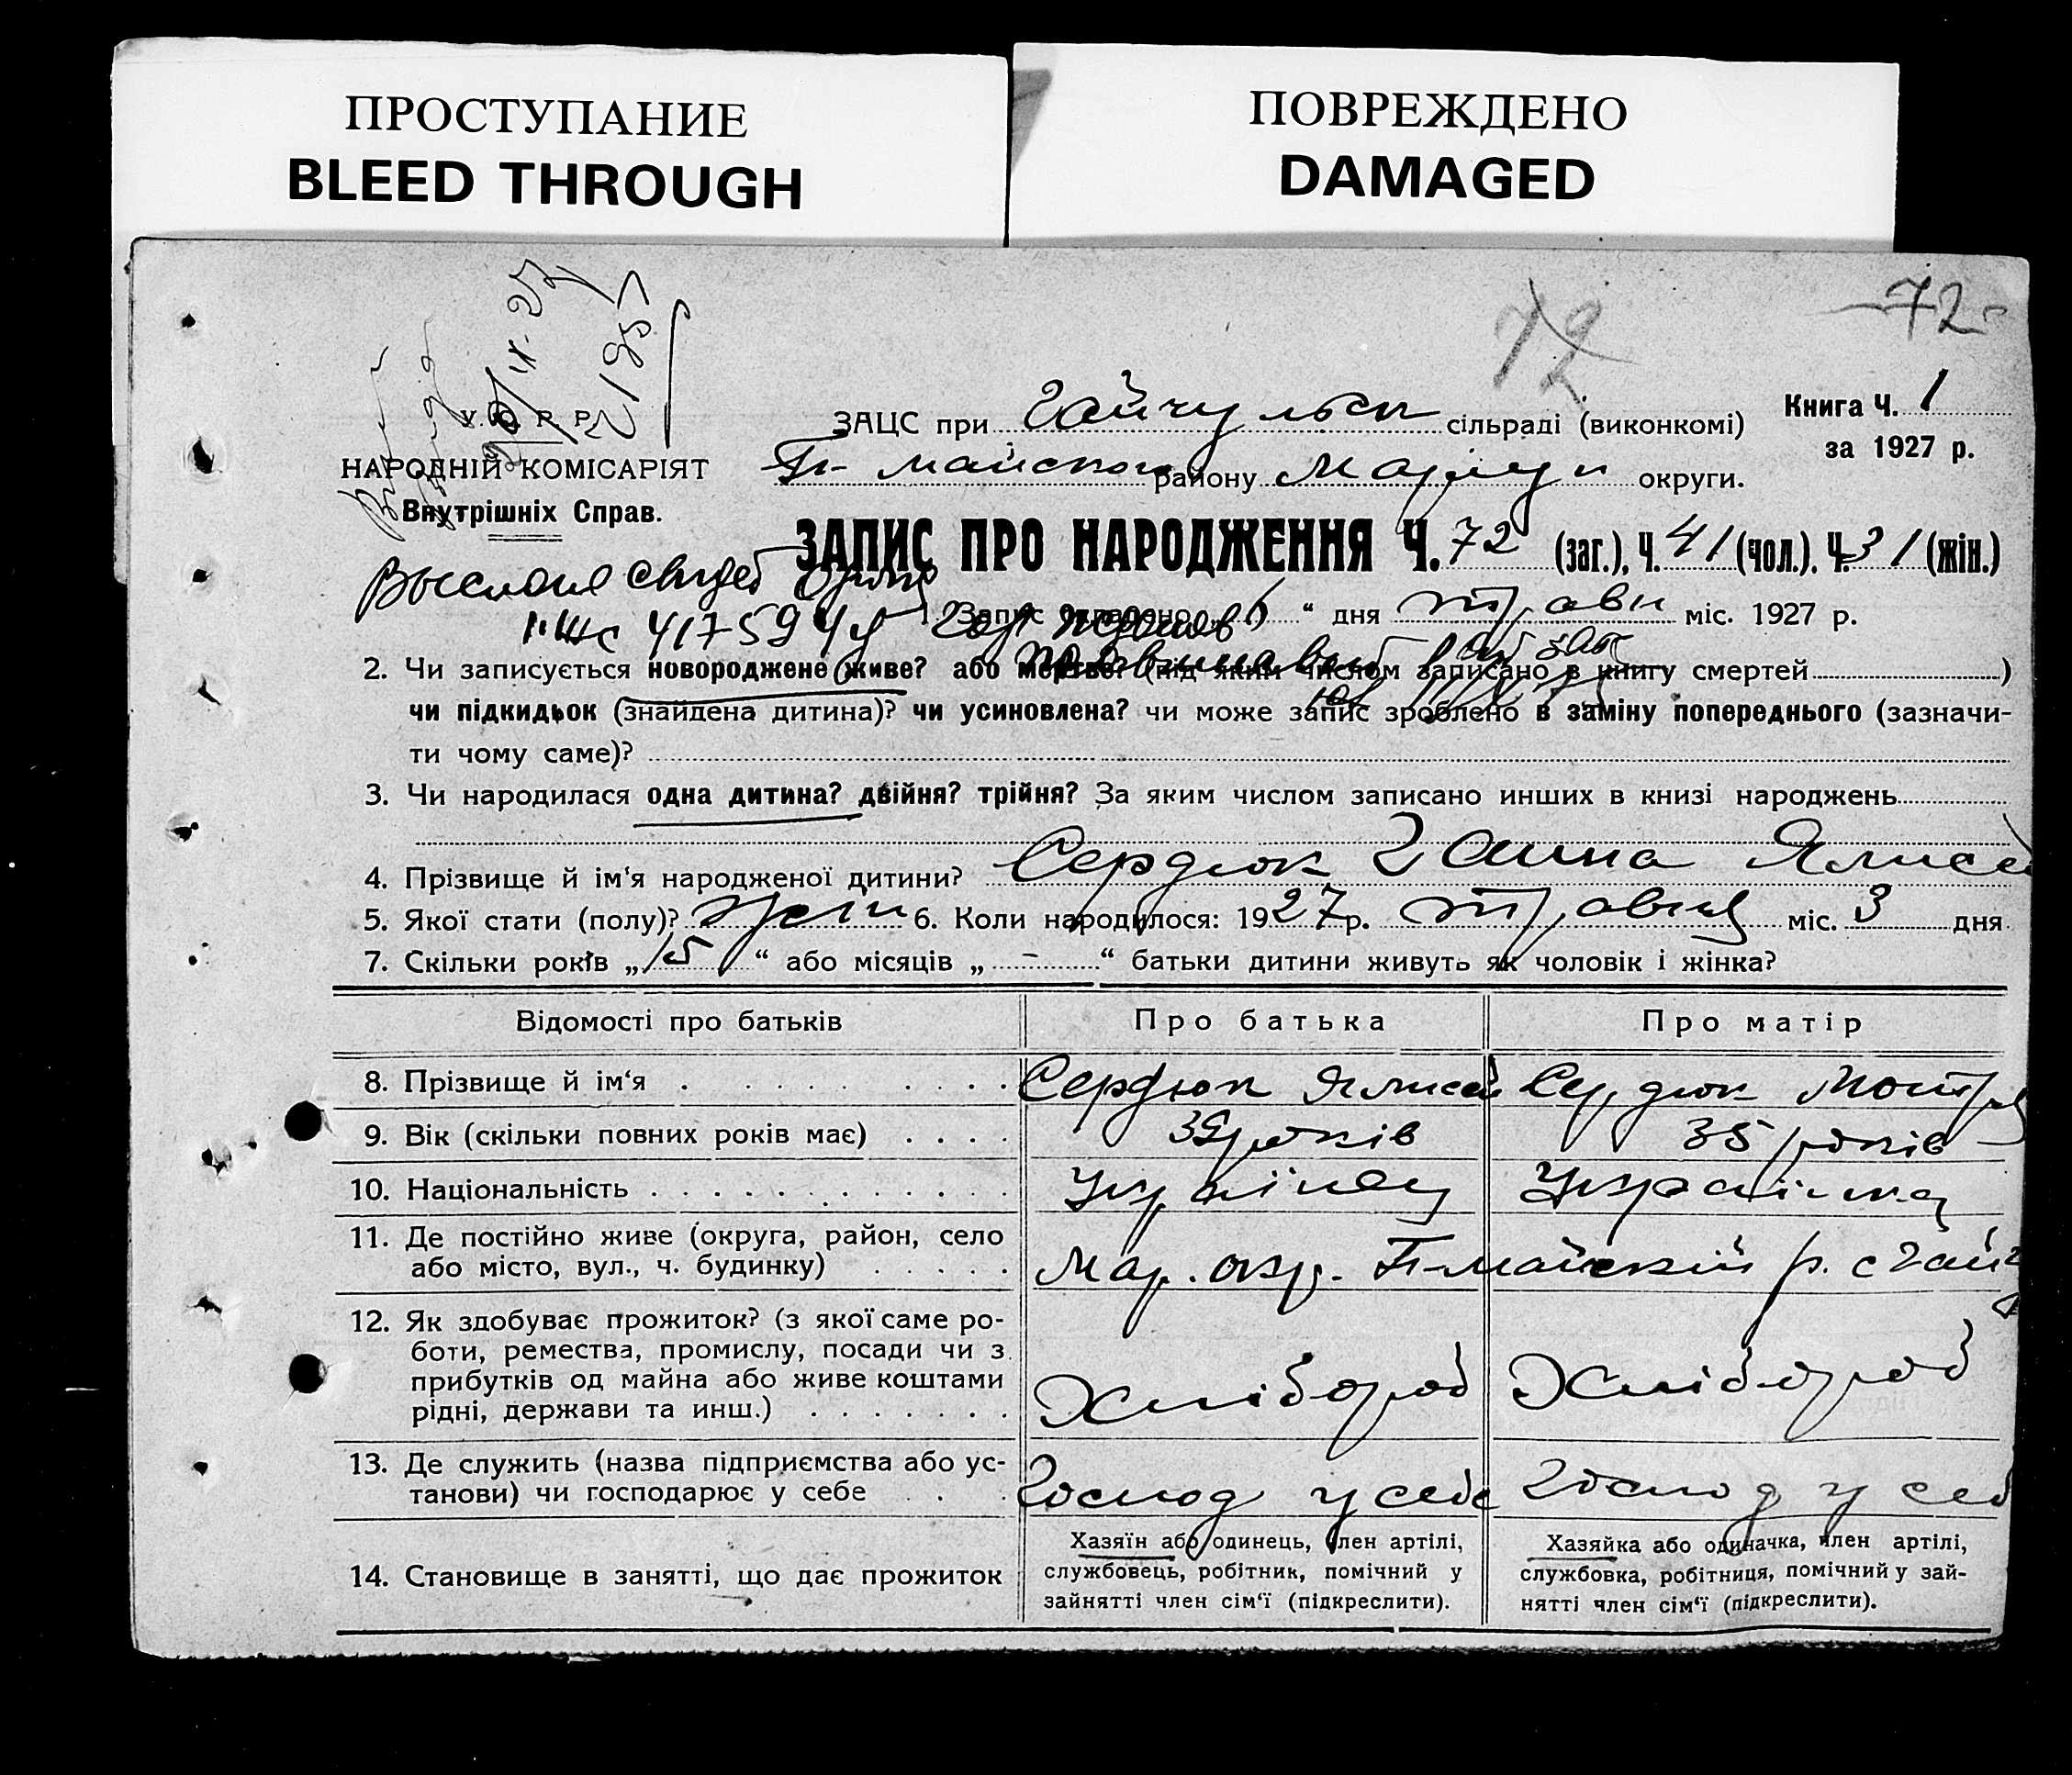 ПРОСТУПАНИЕ
BLEED THROUGH
ПОВРЕЖДЕНО
DAMAGED
72
-72-
У.С.Р.Р.
НАРОДНІЙ КОМІСАРІЯТ
Внутрішніх Справ.
ЗАЦС при Гайчульск сільраді (виконкомі)
П-майського району Маріуп округи.
Книга Ч. 1
за 1927 р.
ЗАПИС ПРО НАРОДЖЕННЯ Ч. 72 (заг.), Ч. 41 (чол.). Ч. 31 (жін.)
417594
1. Запис складено „ “ дня травн міс. 1927 р.
2. Чи записується новороджене живе? або мертве? (під яким числом записано в книгу смертей )
чи підкидьок (знайдена дитина)? чи усиновлена? чи може запис зроблено в заміну попереднього (зазначи-
ти чому саме)?
3. Чи народилася одна дитина? двійня? трійня? За яким числом записано инших в книзі народжень
4. Прізвище й ім‘я народженої дитини? Сердюк Ганна Ялисе
5. Якої стати (полу)? жін 6. Коли народилося: 1927 р. травня міс. 3 дня
7. Скільки років „15“ або місяців „-“ батьки дитини живуть як чоловік і жінка?
Відомості про батьків Про батька Про матір
8. Прізвище й ім‘я Сердюк Ялисей Сердюк Мотря
9. Вік (скільки повних років має) років 35 років
10. Національність Українец Українка
11. Де постійно живе (округа, район, село
або місто, вул., ч. будинку) Мар. окр. П-майский р. с Гайч
12. Як здобуває прожиток? (з якої саме ро-
боти, ремества, промислу, посади чи з
прибутків од майна або живе коштами
рідні, держави та инш.) Хлібороб Хлібороб
13. Де служить (назва підприємства або ус-
танови) чи господарює у себе Господ у себе Господ у себ
14. Становище в занятті, що дає прожиток
Хазяїн або одинець, член артілі,
службовець, робітник, помічний у
зайнятті член сім‘ї (підкреслити).
Хазяйка або одиначка, член артілі,
службовка, робітниця, помічний у зай-
нятті член сім‘ї (підкреслити).